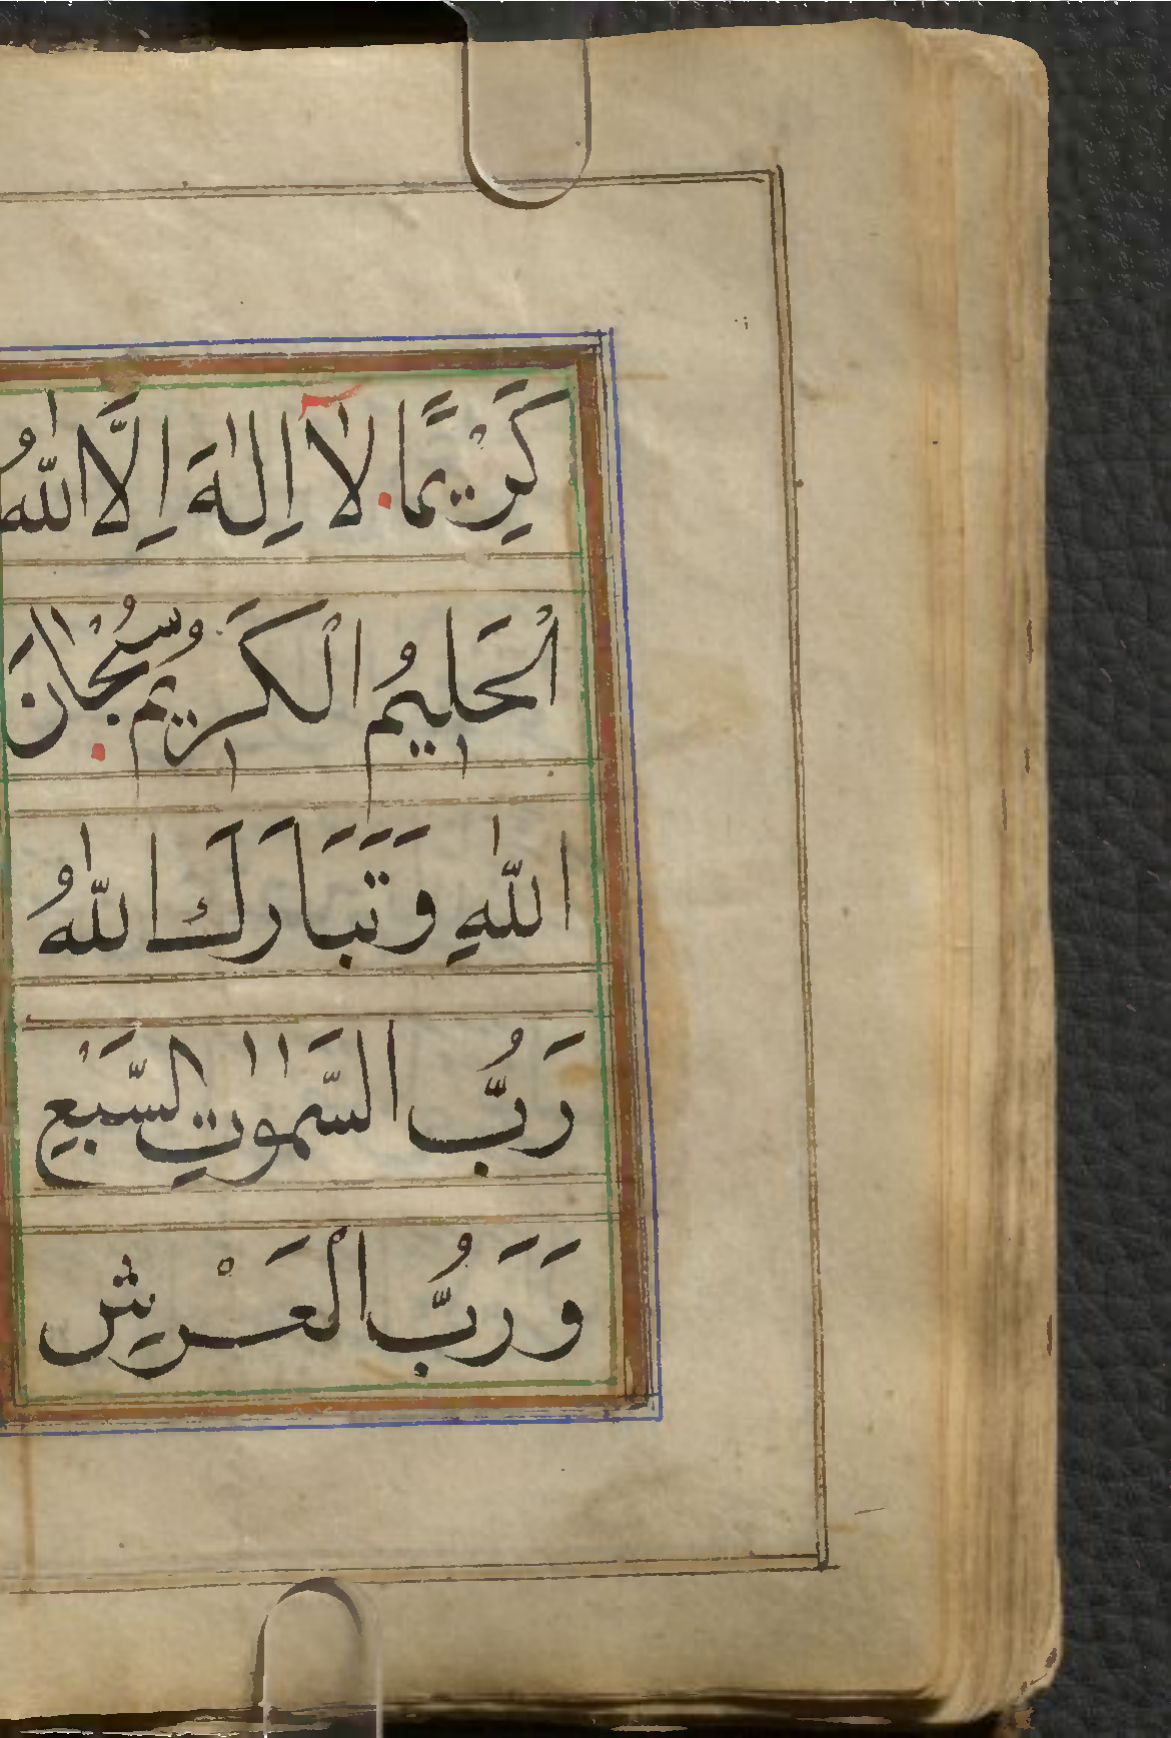 كَرِيْمًا لَا اِلٰهَ اِلَّا اللّٰهُ
اَلْحَلِيمُ الْكَرِيمُ وَسُبْحَانَ
اللّٰهِ وَتَبَارَكَ اللّٰهُ
رَبُّ السَّمٰوٰتِ السَّبْعِ
وَرَبُّ الْعَرْشِ